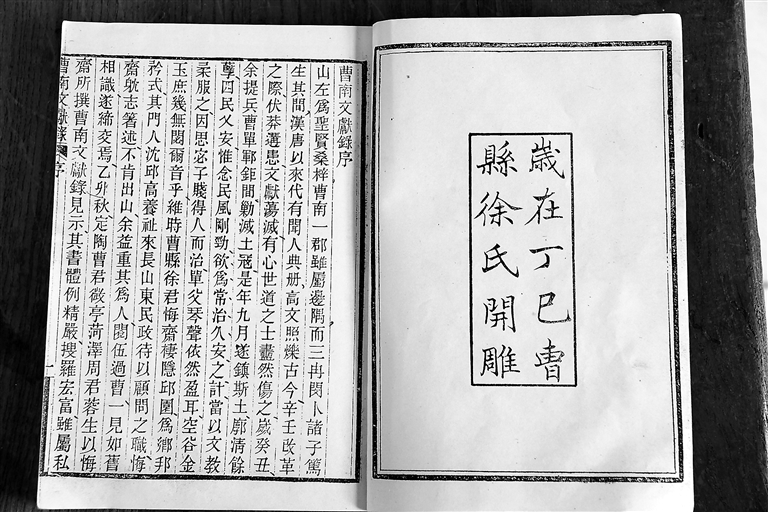 歲在丁巳曹
縣徐氏開雕
曹南文獻錄序
山左爲聖賢桑梓曹南一郡雖屬邊隅而三冉閔卜諸子篤
生其間漢唐以來代有聞人典册高文照爍古今辛壬改革
之際伏莽遘患文獻蕩滅有心世道之士盡然傷之歲癸丑
余提兵曹單鄆鉅間勦滅土冦是年九月遂鎮斯土廓清餘
孽四民乂安惟念民風剛勁欲爲常治久安之計當以文教
柔服之因思宓子賤得人而治單父琴聲依然盈耳空谷金
玉庶幾無閟爾音乎維時曹縣徐君悔齋棲隱邱園爲鄉邦
矜式其門人沈邱高養祉來長山東民政待以顧問之職悔
齋航志著述不肯出山余益重其爲人閱伍過曹一見如舊
相識遂締交焉乙夘秋定陶曹君徵亭菏澤周君蓉生以悔
齋所撰曹南文獻錄見示其書體例精嚴搜羅宏富雖屬私
曹南文獻錄
序
一